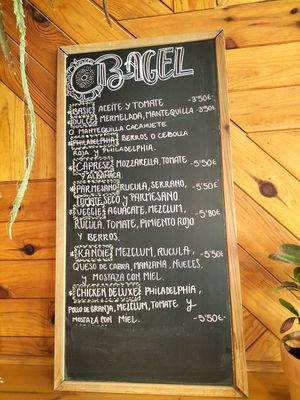 BAGEL
BASIC ACEITE Y TOMATE -3'50€
DULCE MERMELADA, MANTEQUILLA -3'50€
O MANTEQUILLA CACAHUETE
PHILADELPHIA BERROS O CEBOLLA
ROJA Y PHILADELPHIA.
CAPRESE MOZZARELLA, TOMATE -5'50€
Y ALBAHACA.
PARMESANO RUCULA, SERRANO, -5'50€
TOMATE SECO Y PARMESANO.
VEGGIE AGUACATE, MEZCLUM, -5'80€
RUCULA, TOMATE, PIMIENTO ROJO
Y BERROS.
KANDIE MEZCLUM, RUCULA, -5'50€
QUESO DE CABRA, MANZANA, NUECES,
Y MOSTAZA CON MIEL.
CHICKEN DELUXE PHILADELPHIA,
POLLO DE GRANJA, MEZCLUM, TOMATE Y
MOSTAZA CON MIEL. -5'50€